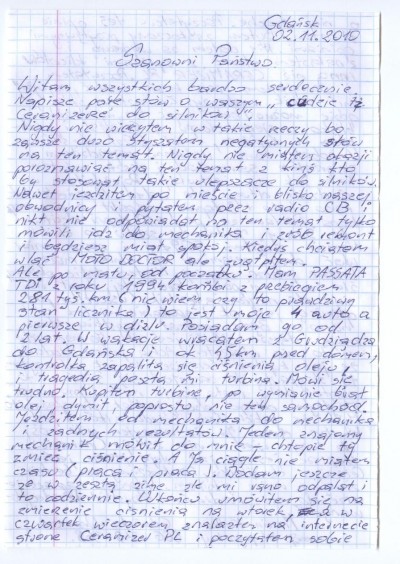 Gdańsk
02.11.2010
Szanowni Państwo
Witam wszystkich bardzo serdecznie
Napisze parę słów o waszym „cudzie iż
Ceramizerze do silników".
Nigdy nie wierzyłem w takie rzeczy bo
zawsze dużo słyszałem negatywnych słów
na ten temat. Nigdy nie miałem okazji
porozmawiać na ten temat z kimś kto
by stosował takie ulepszacze do silników.
Nawet jeździłem po mieście i blisko naszej
obwodnicy i pytałem przez radio CB
nikt nie odpowiadał na ten temat tylko
mówili idź do mechanika i zrób remont
i będziesz miał spokój. Kiedyś chciałem
wlać MOTO DOCTOR ale zwątpiłem.
Ale po mału, od początku. Mam PASSATA
TDi z roku 1994 kombi z przebiegiem
281 tyś. km (nie wiem czy to prawdziwy
stan licznika) to jest moje 4 auto a
pierwsze w dizlu. Posiadam go od
2 lat. W wakacje wracałem z Grudziądza
do Gdańska i ok 45 km przed domem,
kontrolka zapaliła się ciśnienia oleju,
i tragedia poszła mi turbina. Mówi się
trudno. Kupiłem turbinę, po wymianie brał
olej, dymił, poprostu nie ten samochód.
Jeździłem od mechanika do mechanika
i żadnych rezultatów. Jeden znajomy
mechanik mówił do mnie – chłopie ty
zmierz ciśnienie. A ja ciągle nie miałem
czasu (praca i praca). Dodam jeszcze
że w zeszłą zimę źle mi rano odpalał i
to codziennie. Wkońcu umówiłem się na
zmierzenie ciśnienia na wtorek, w
czwartek wieczorem, znalazłem na internecie
stronę Ceramizer PL i poczytałem sobie